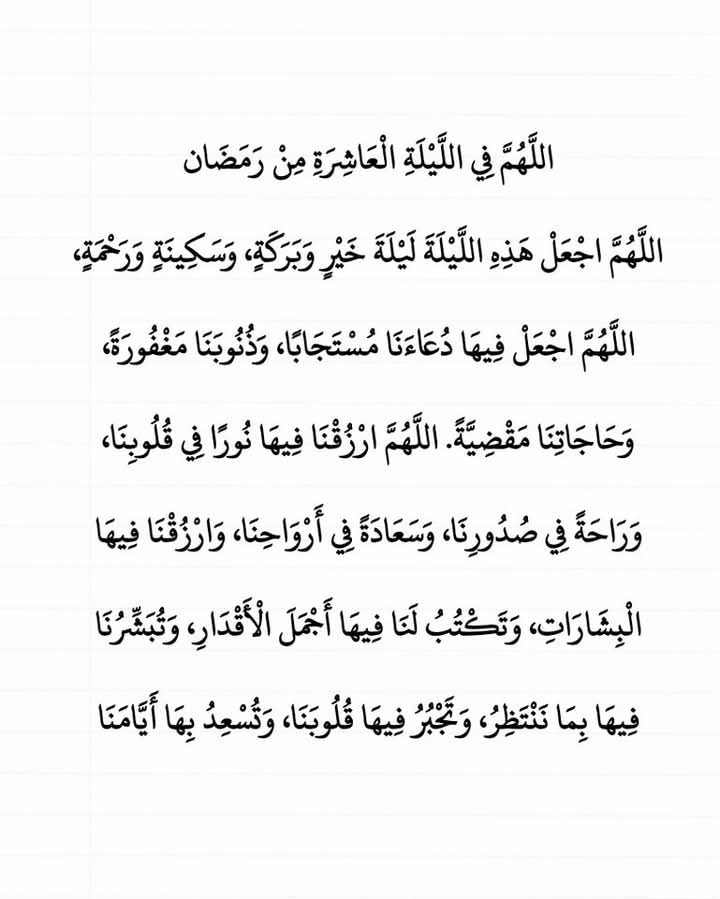 اللَّهُمَّ فِي اللَّيْلَةِ الْعَاشِرَةِ مِنْ رَمَضَان
اللَّهُمَّ اجْعَلْ هَذِهِ اللَّيْلَةَ لَيْلَةَ خَيْرٍ وَبَرَكَةٍ، وَسَكِينَةٍ وَرَحْمَةٍ،
اللَّهُمَّ اجْعَلْ فِيهَا دُعَاءَنَا مُسْتَجَابًا، وَذُنُوبَنَا مَغْفُورَةً،
وَحَاجَاتِنَا مَقْضِيَّةً. اللَّهُمَّ ارْزُقْنَا فِيهَا نُورًا فِي قُلُوبِنَا،
وَرَاحَةً فِي صُدُورِنَا، وَسَعَادَةً فِي أَرْوَاحِنَا، وَارْزُقْنَا فِيهَا
الْبِشَارَاتِ، وَتَكْتُبُ لَنَا فِيهَا أَجْمَلَ الْأَقْدَارِ، وَتُبَشِّرُنَا
فِيهَا بِمَا نَنْتَظِرُ، وَتَجْبُرُ فِيهَا قُلُوبَنَا، وَتُسْعِدُ بِهَا أَيَّامَنَا